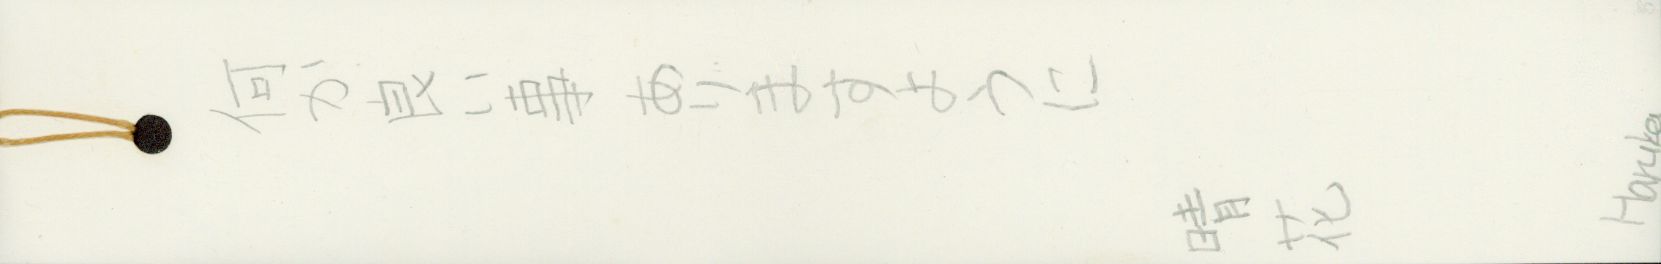 何か良い事あいますように
晴花
Haruka